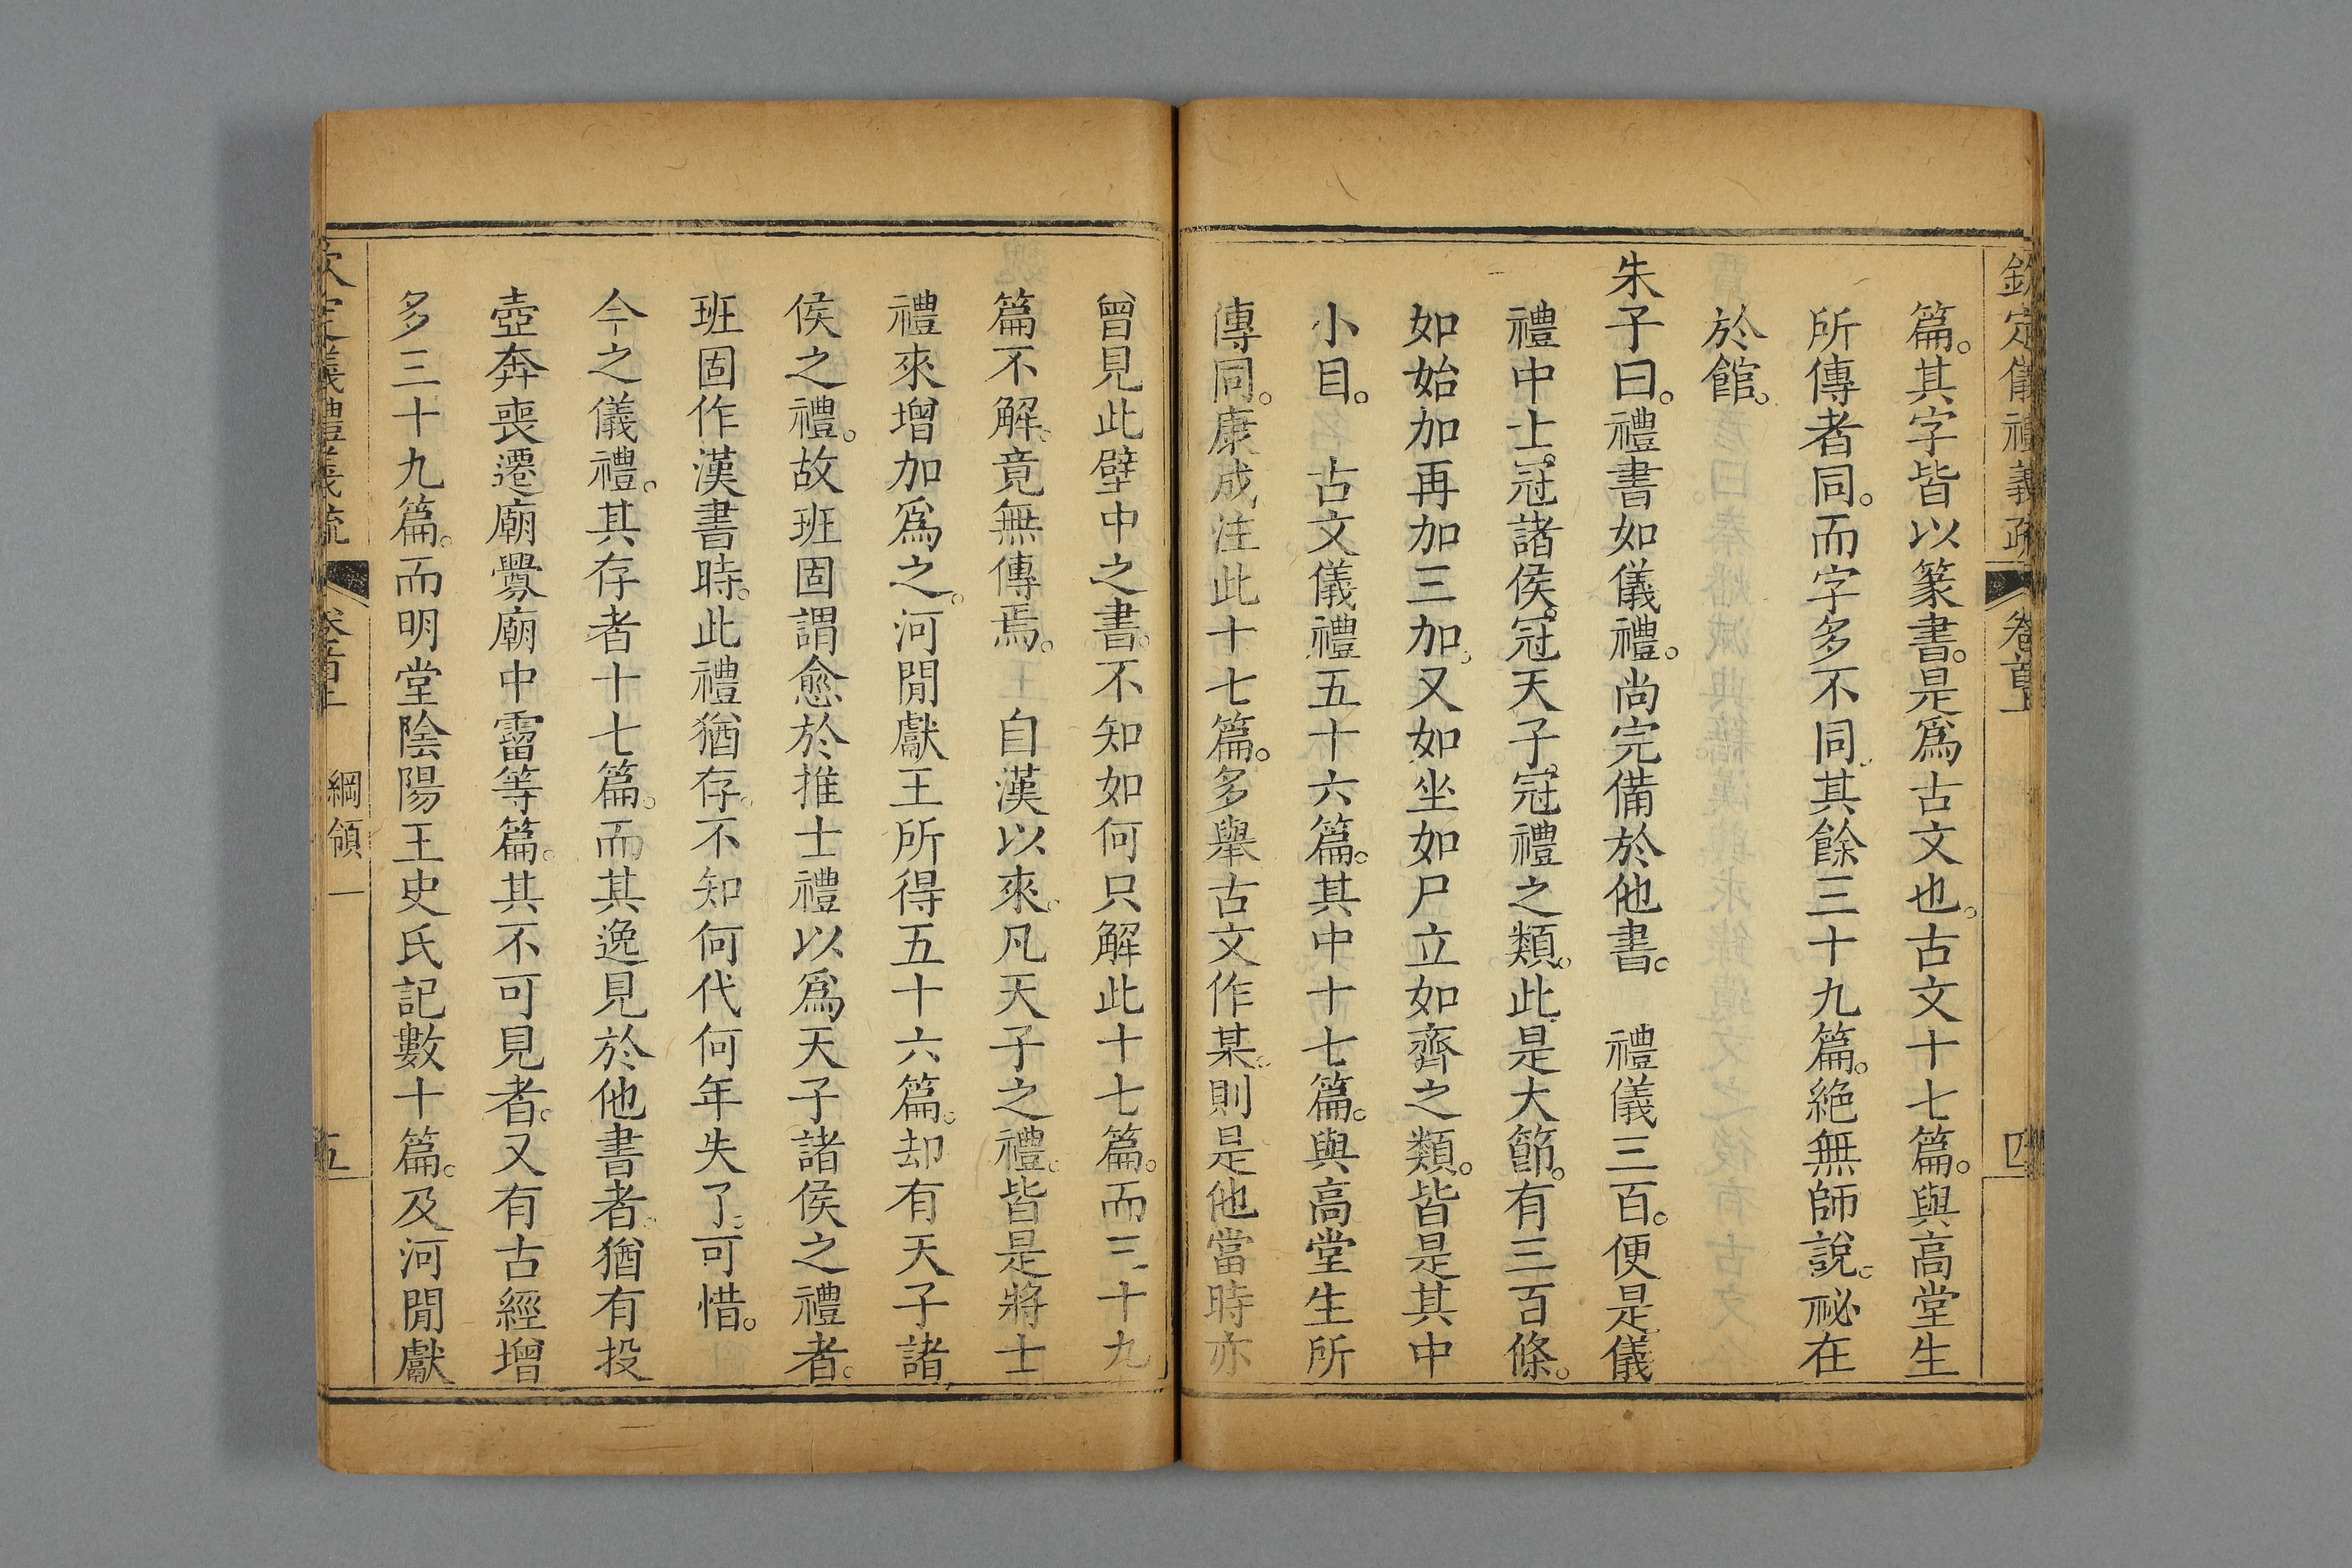 欽定儀禮義疏 卷首上 四
篇。其字皆以篆書。是爲古文也。古文十七篇。與高堂生
所傳者同。而字多不同。其餘三十九篇。絶無師說。祕在
於館。
朱子曰。禮書如儀禮。尚完備於他書。 禮儀三百。便是儀
禮中士冠諸侯冠天子冠禮之類。此是大節。有三百條。
如始加再加三加。又如坐如尸立如齊之類。皆是其中
小目。 古文儀禮五十六篇。其中十七篇。與高堂生所
傳同。康成注此十七篇。多舉古文作某。則是他當時亦
曾見此壁中之書。不知如何只解此十七篇。而三十九
篇不解。竟無傳焉。 自漢以來。凡天子之禮。皆是將士
禮來增加爲之。河閒獻王所得五十六篇。却有天子諸
侯之禮。故班固謂愈於推士禮以爲天子諸侯之禮者。
班固作漢書時。此禮猶存。不知何代何年失了。可惜。
今之儀禮。其存者十七篇。而其逸見於他書者。猶有投
壺奔喪遷廟釁廟中霤等篇。其不可見者。又有古經增
多三十九篇。而明堂陰陽王史氏記數十篇。及河閒獻
欽定儀禮義疏 卷首上 綱領一 五